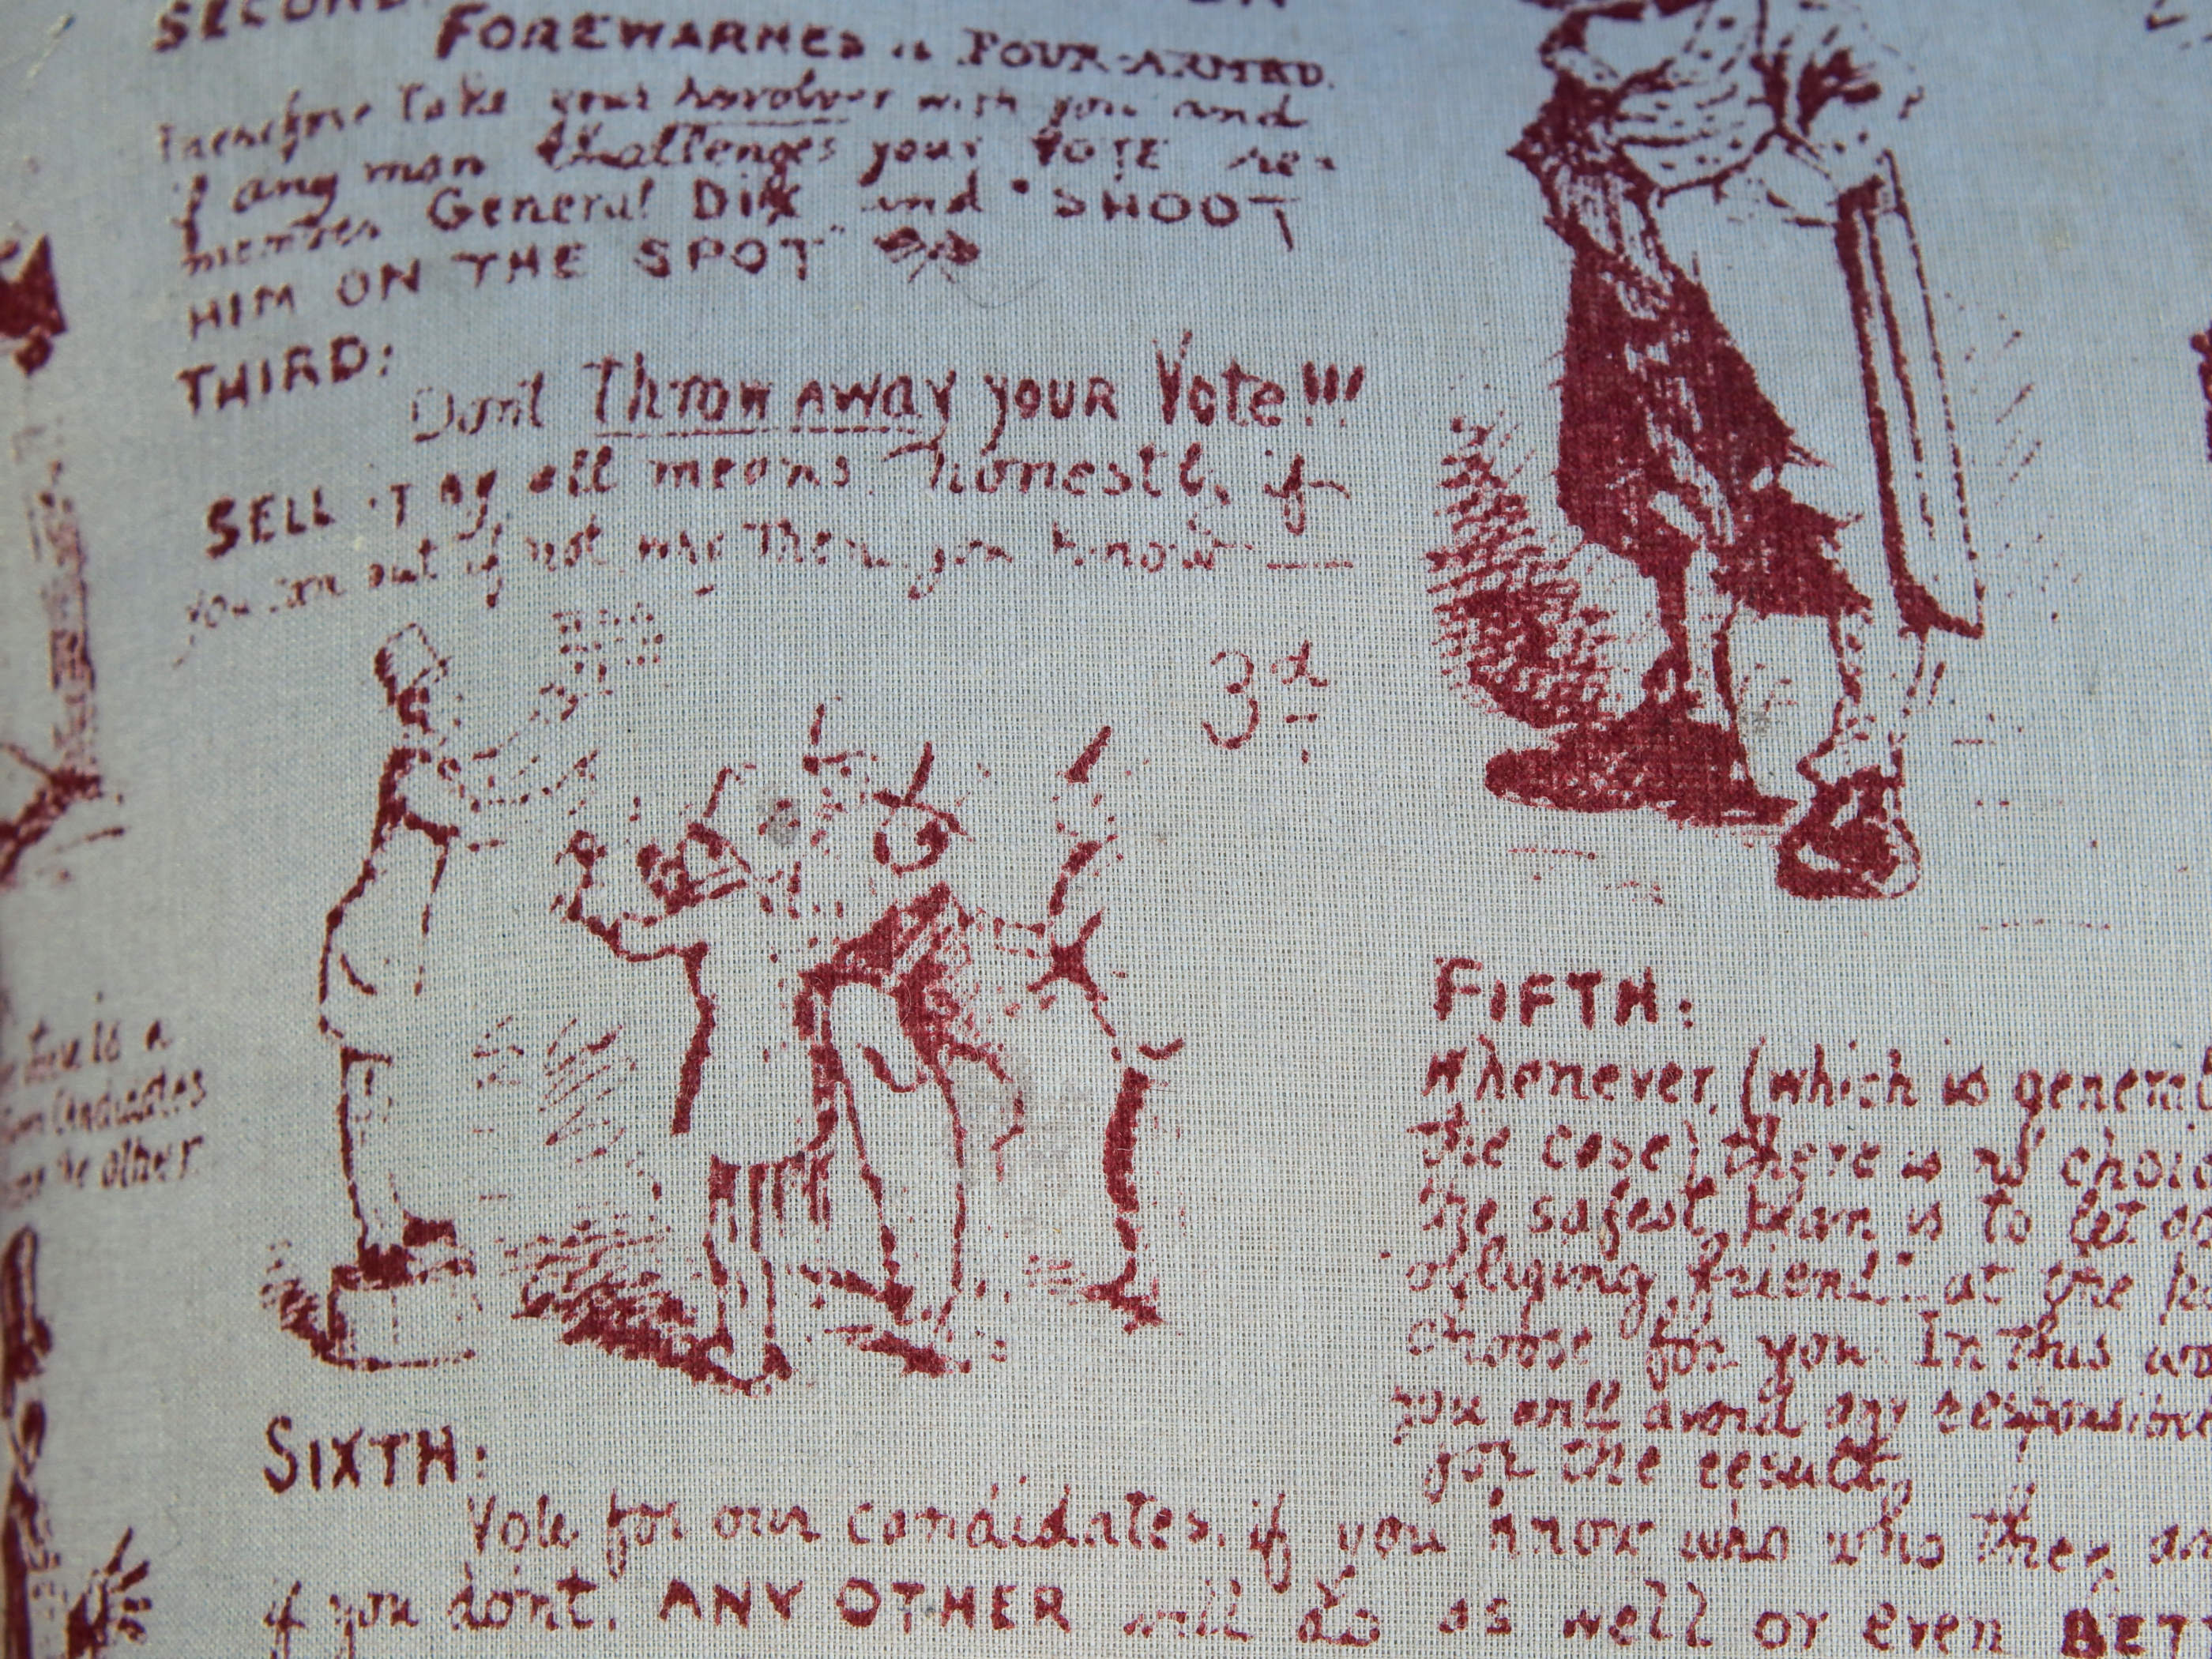 SECOND
FOREWARNED is FOUR-ARMED.
Therefore Take your revolver with you and
if any man challenges your VOTE re-
member General Dix and "SHOOT
HIM ON THE SPOT"
THIRD:
Don't Throw AWAY YOUR Vote!!!
SELL IT by all means, honestly if
you can but if not why Then you know —
3d
is a
Candidates
the other
FIFTH:
Whenever, (which is general
the case) there is no choic
the safest plan is to let
obliging friend at the
choose for you In this
you will avoid any responsible
for the result,
SIXTH:
Vote for our candidates, if you know who who they
if you don't, ANY OTHER will do as well or even BET